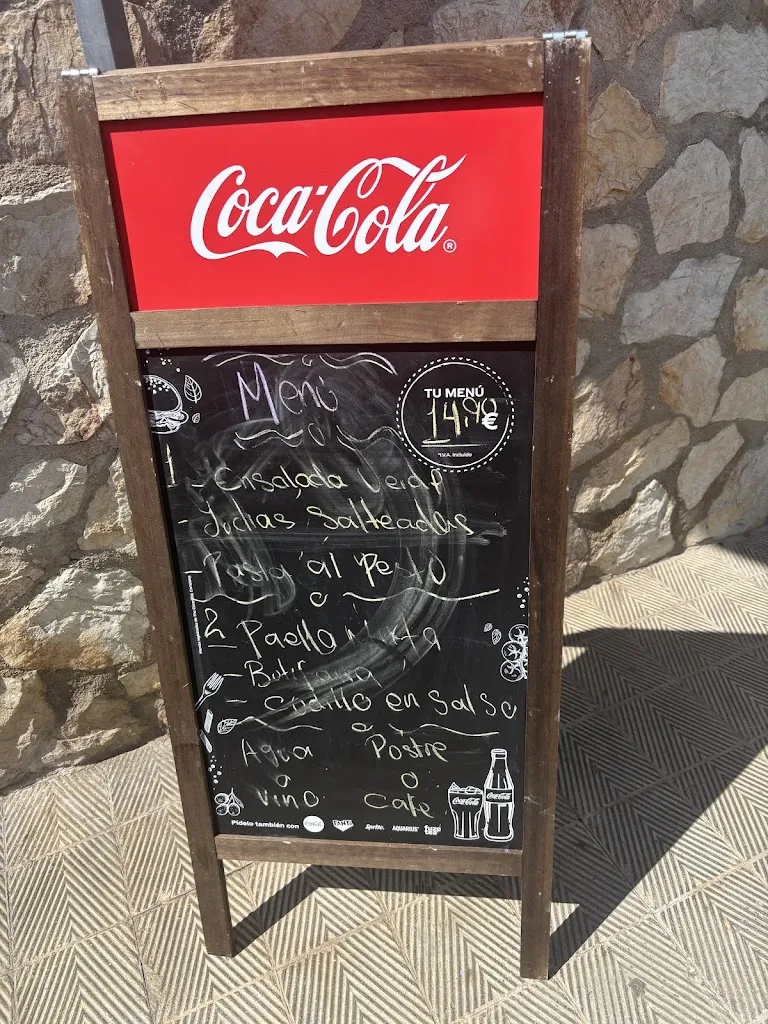 Coca-Cola®
Menú
TU MENÚ
14,90
€
*I.V.A. Incluido
1 - Ensalada Verde
- Judias Salteadas
- Pasta al Pesto
2 Paella Mixta
- Butifarra
- Codillo en Salsa
Agua Postre
o o
Vino Cafe
Coca-Cola Coca-Cola
Pídelo también con FANTA Sprite. AQUARIUS fuze tea